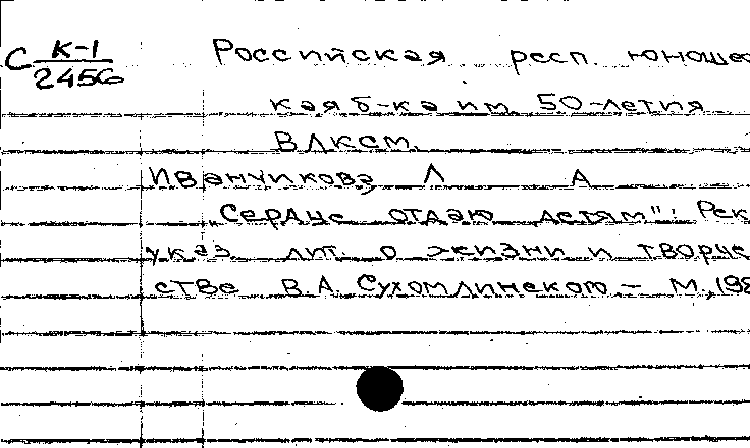 С К-1
2456
Российская респ. юношес
кая б-ка им. 50-летия
ВЛКСМ.
Иванчикова, Л А
„Сердце отдаю детям": Рек.
указ. лит. о жизни и творче
стве В.А. Сухомлинского – М., 198